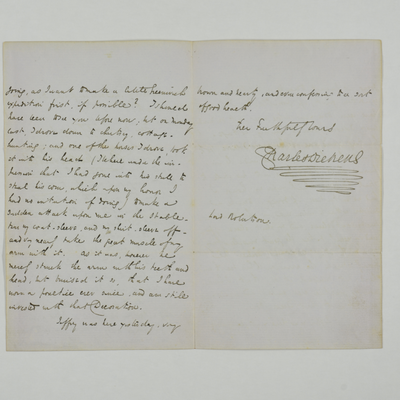 doing, as I want to make a little
expedition first, if possible? I should
have been to see you before now, but on Monday
last, I drove down to Chertsey, cottage-
hunting; and one of the horses I drove took
it into his head (I believe under the im-
pression that I had gone into his stall to
steal his corn, which upon my honor I
had no intention of doing) to make a
sudden attack upon me in the stable.
tear my coat-sleeve, and my shirt-sleeve off-
and very nearly take the great muscle of my
arm with it. As it was, however he
merely struck the arm with his teeth and
head, but bruised it so, that I have
worn a poultice ever since, and am still
invested with that Decoration.
Jeffrey was here yesterday. very
brown and hearty, and even confessing to a sort
of good health.
Ever Faithfully Yours
Charles Dickens
Lord Robertson.